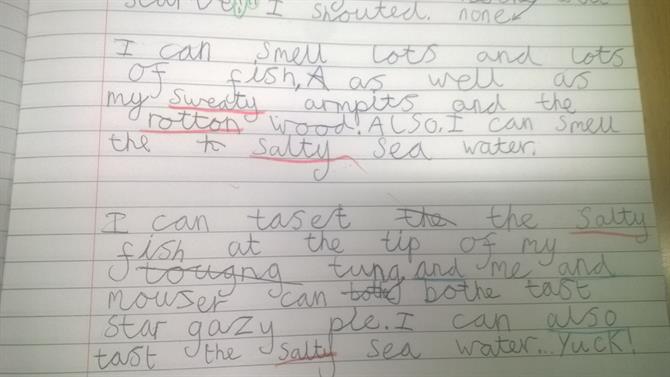 I shouted. none
I can smell lots and lots
of fish, A as well as
my sweaty armpits and the
rotton wood. ALSO, I can smell
the tr salty sea water.
I can taset the the salty
fish at the tip of my
tougng tung and me and
mouser can bothe bothe tast
star gazy pie. I can also
tast the salty sea water... Yuck!